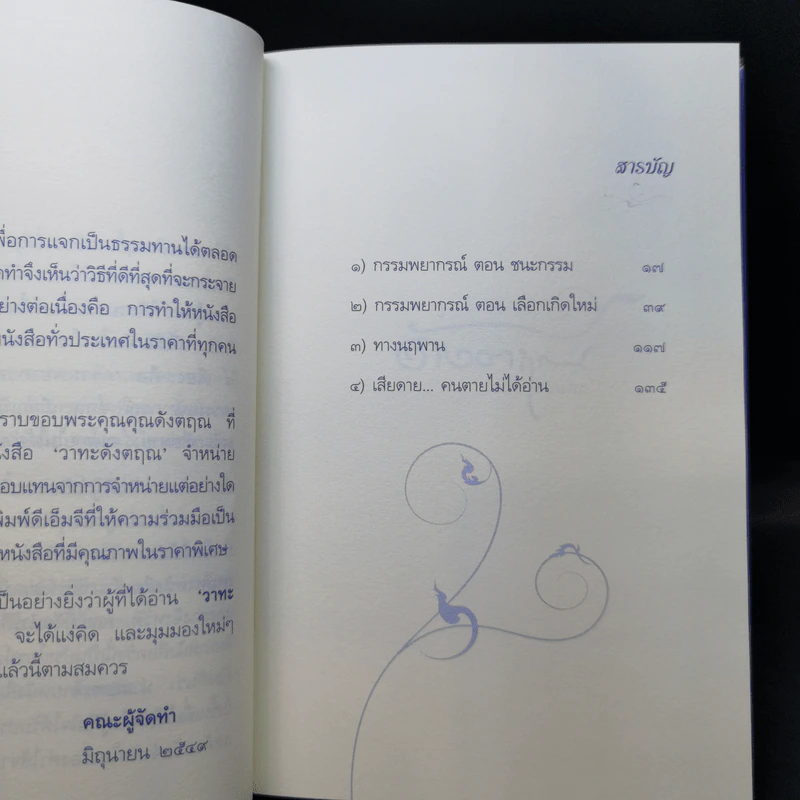 พื่อการแจกเป็นธรรมทานได้ตลอด
ทำจึงเห็นว่าวิธีที่ดีที่สุดที่จะกระจาย
ย่างต่อเนื่องคือ การทำให้หนังสือ
หนังสือทั่วประเทศในราคาที่ทุกคน
ราบขอบพระคุณคุณดังตฤณ ที่
งสือ ‘วาทะดังตฤณ’ จำหน่าย
อบแทนจากการจำหน่ายแต่อย่างใด
พิมพ์ดีเอ็มจีที่ให้ความร่วมมือเป็น
หนังสือที่มีคุณภาพในราคาพิเศษ
ป็นอย่างยิ่งว่าผู้ที่ได้อ่าน ‘วาทะ
จะได้แง่คิด และมุมมองใหม่ๆ
แล้วนี้ตามสมควร
คณะผู้จัดทำ
มิถุนายน ๒๕๔๙
สารบัญ
๑) กรรมพยากรณ์ ตอน ชนะกรรม ๑๗
๒) กรรมพยากรณ์ ตอน เลือกเกิดใหม่ ๓๙
๓) ทางนฤพาน ๑๑๗
๔) เสียดาย... คนตายไม่ได้อ่าน ๑๓๕